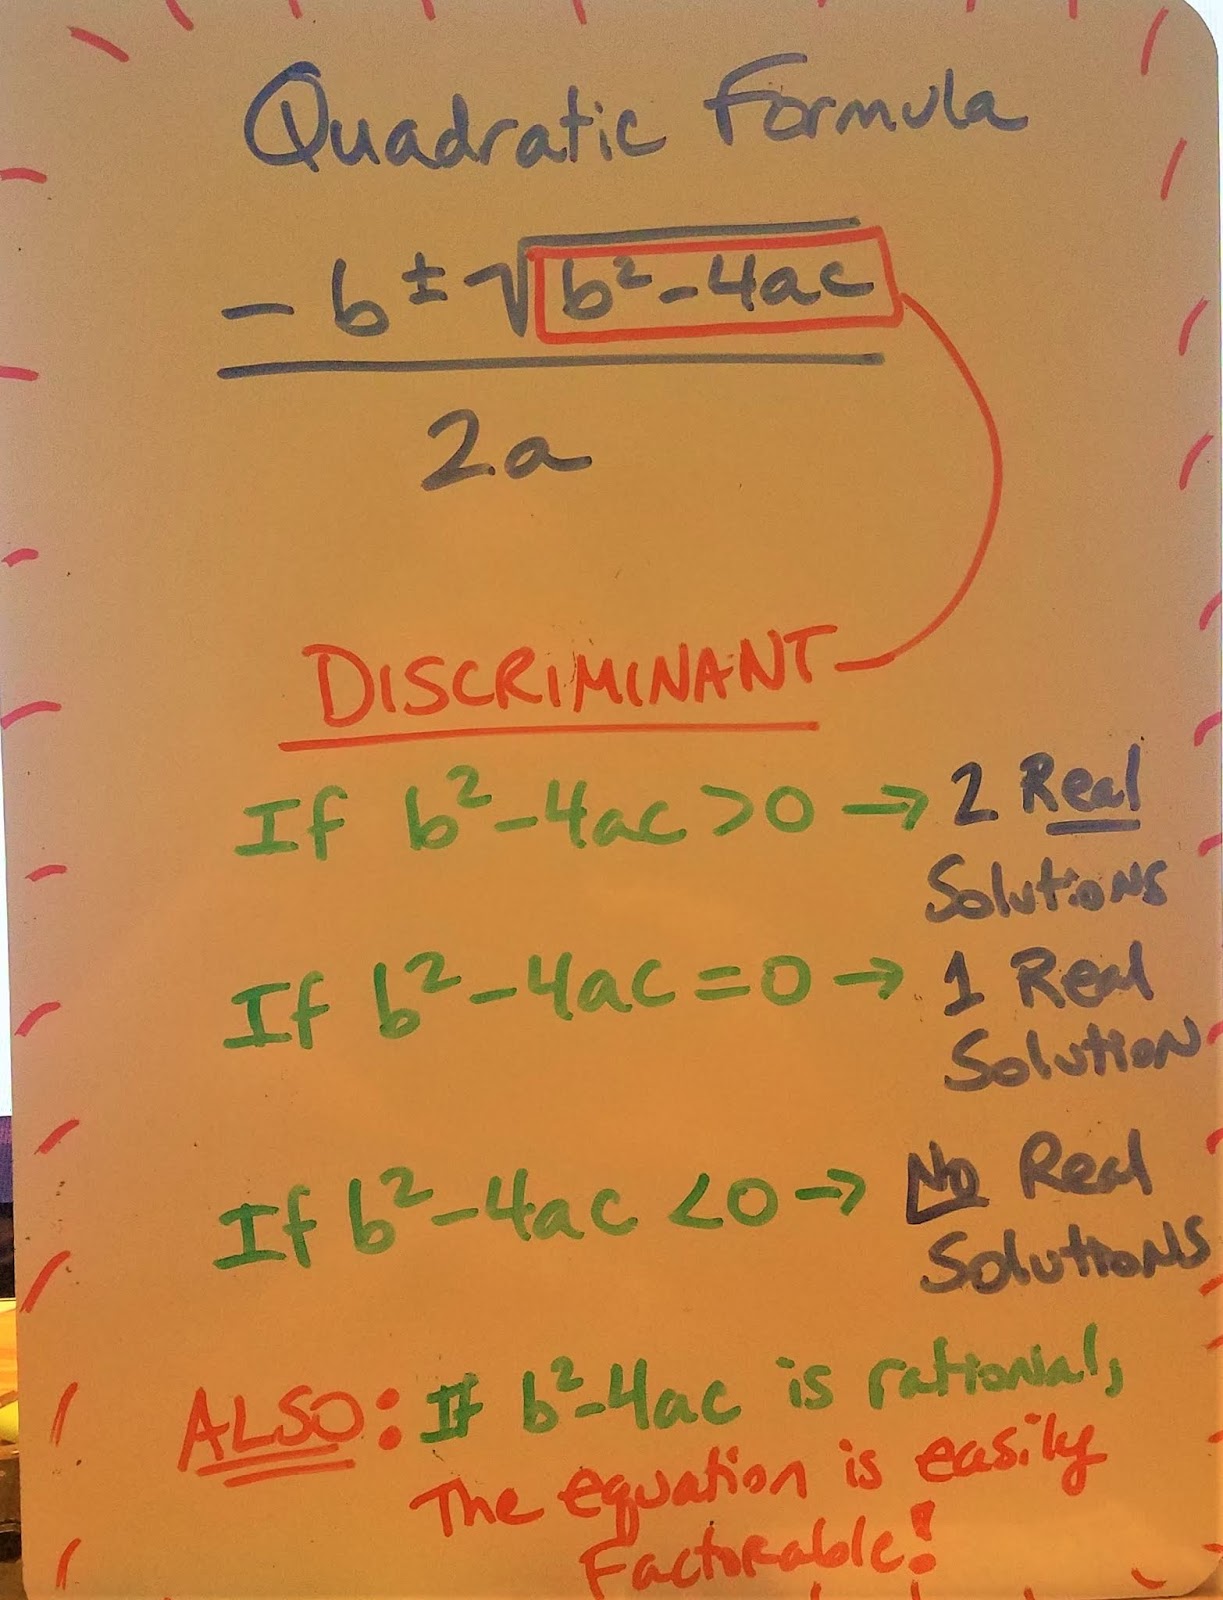 Quadratic Formula
- b ± √b² - 4ac
2a
DISCRIMINANT
If b² - 4ac > 0 → 2 Real
Solutions
If b² - 4ac = 0 → 1 Real
Solution
If b² - 4ac < 0 → No Real
Solutions
ALSO: If b² - 4ac is rationial,
The equation is easily
Factorable!